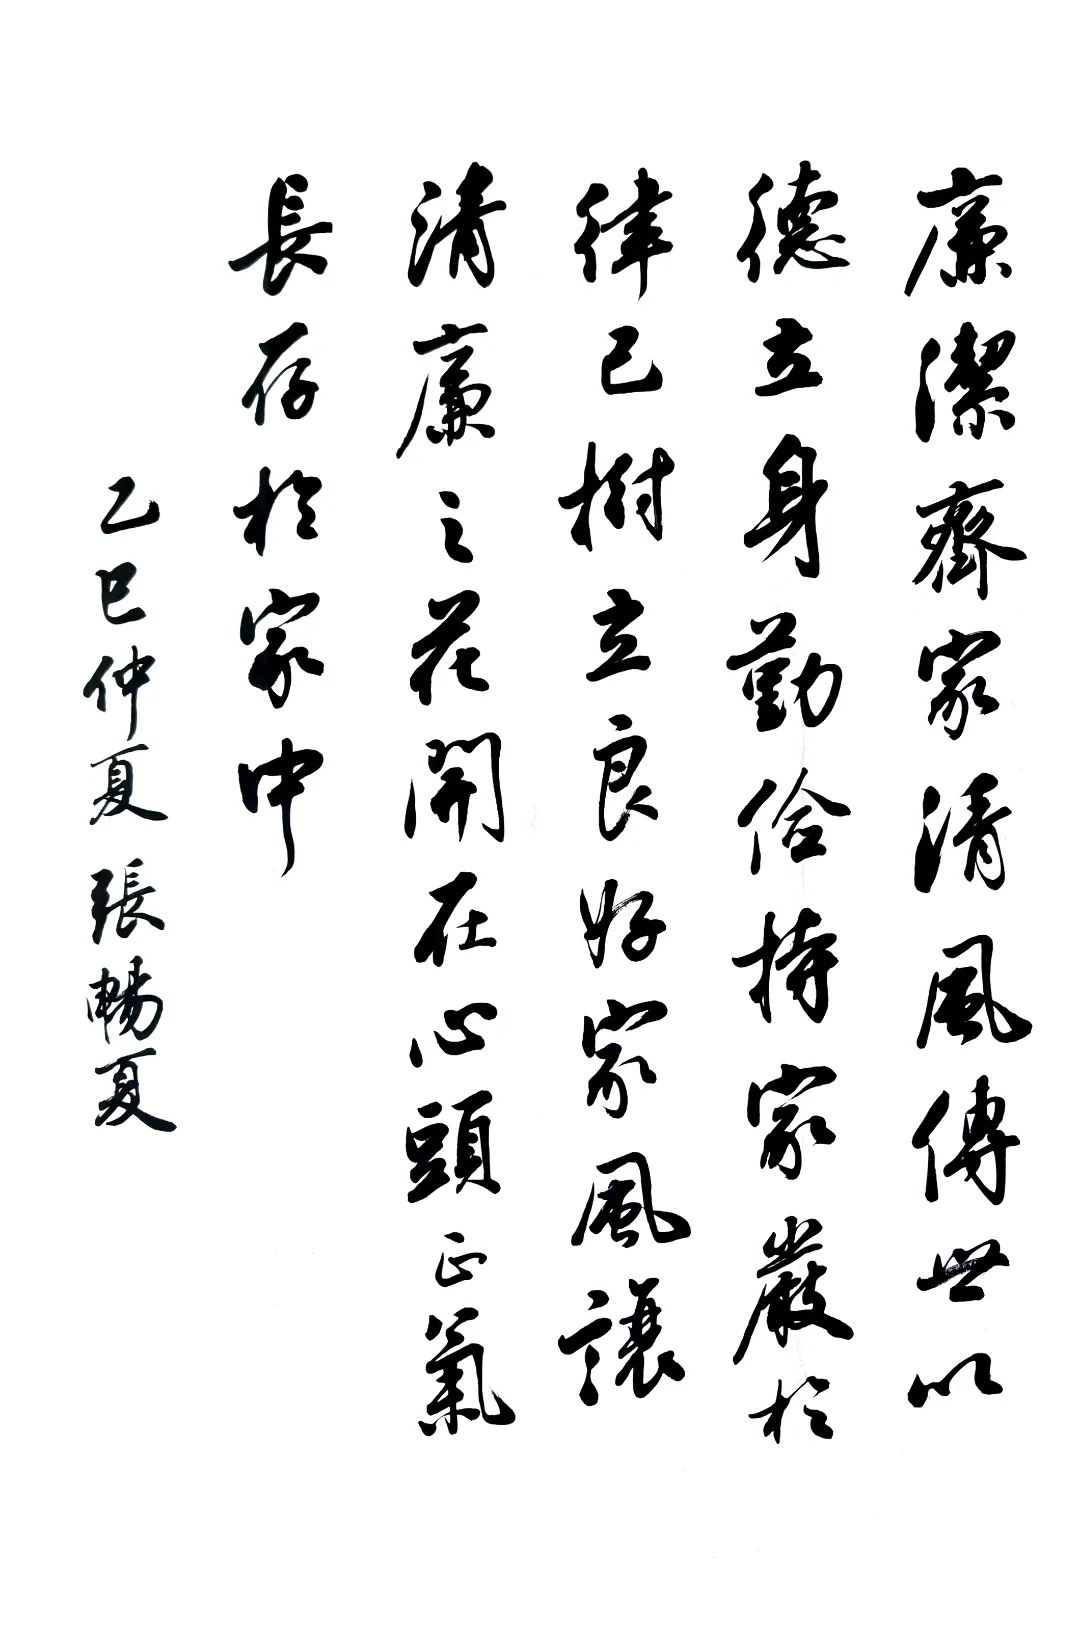 廉潔齊家清風傳世以
德立身勤儉持家嚴於
律己樹立良好家風讓
清廉之花開在心頭正氣
長存於家中
乙巳仲夏張暢夏